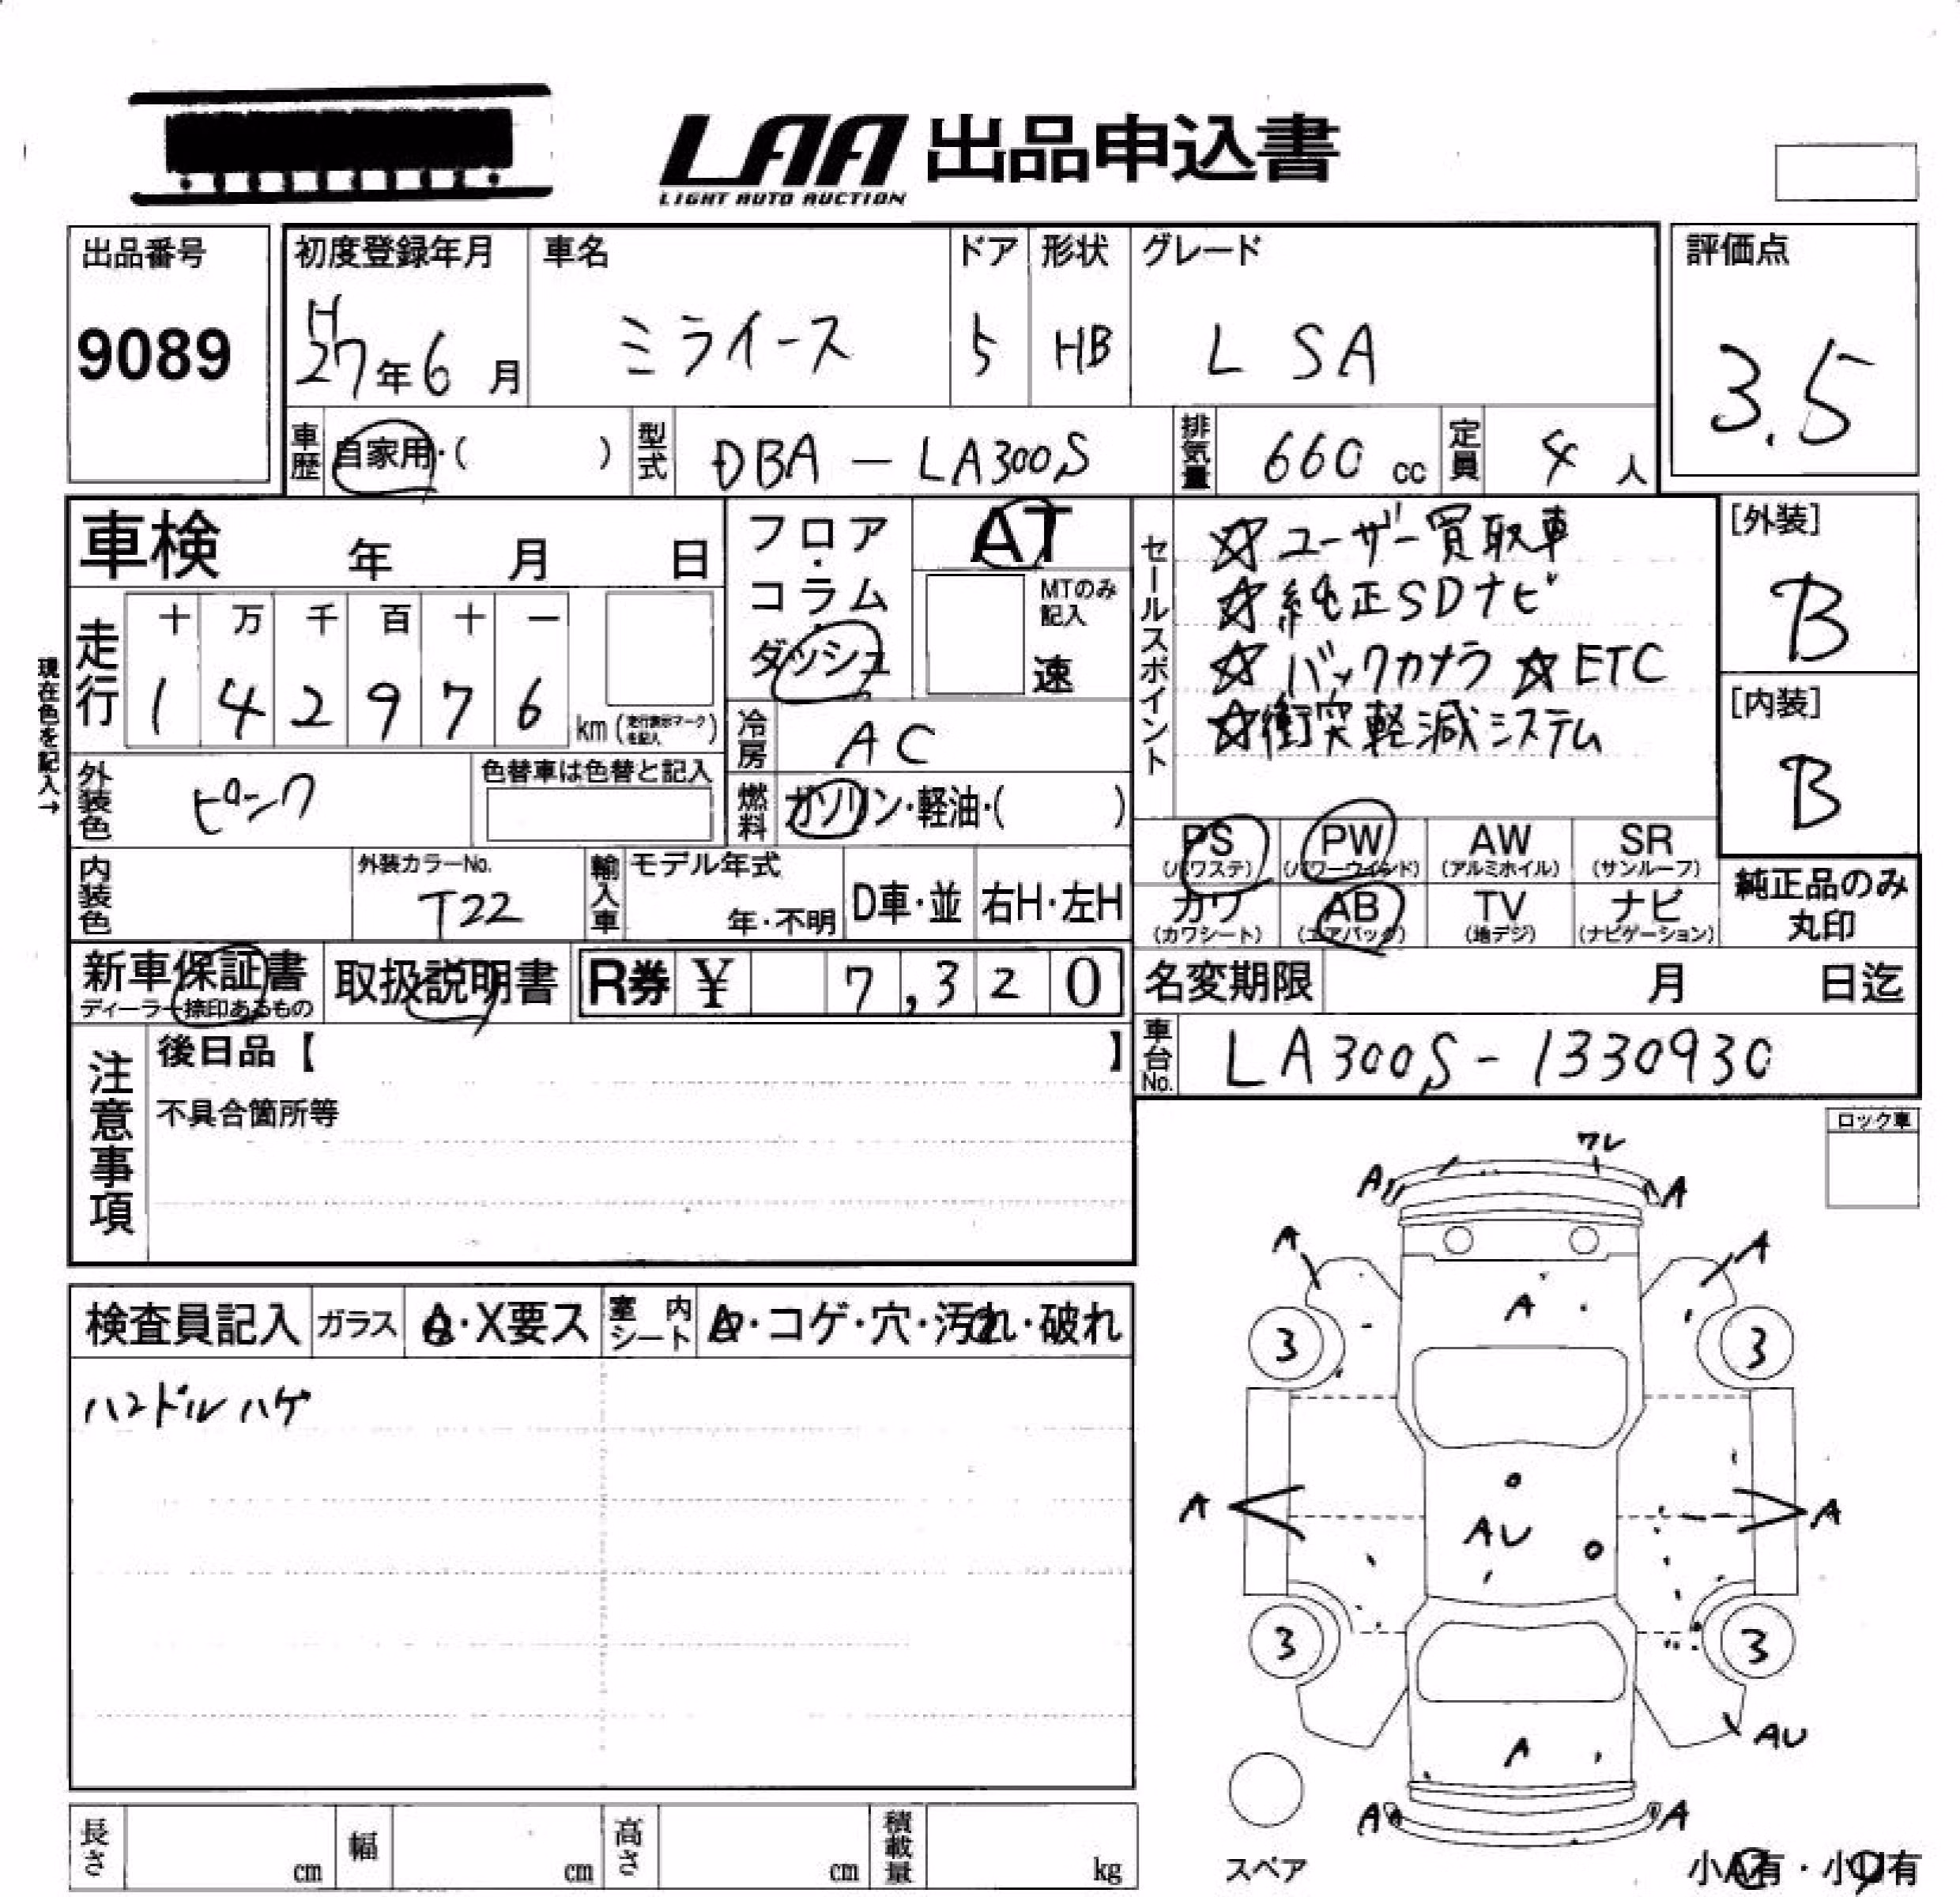 LAA 出品申込書
LIGHT AUTO AUCTION
出品番号
9089
初度登録年月
H
27年6月
車名
ミライース
ドア
5
形状
HB
グレード
L SA
評価点
3.5
車歴
自家用・( )
型式
DBA-LA300S
排気量
660 cc
定員
4人
車検 年 月 日
現在色を記入→
走行
十 万 千 百 十 一
1 4 2 9 7 6
km (走行表示マークを記入)
フロア・
コラム・
ダッシュ
AT
MTのみ
記入
速
冷房
AC
燃料
ガソリン・軽油・( )
外装色
ピンク
色替車は色替と記入
内装色
外装カラーNo.
T22
輸入車
モデル年式
年・不明
D車・並
右H・左H
セールスポイント
☆ユーザー買取車
☆純正SDナビ
☆バックカメラ ☆ETC
☆衝突軽減システム
[外装]
B
[内装]
B
PS PW AW SR
(パワステ) (パワーウィンド) (アルミホイル) (サンルーフ)
カワ AB TV ナビ
(カワシート) (エアバック) (地デジ) (ナビゲーション)
純正品のみ
丸印
新車保証書
ディーラー捺印あるもの
取扱説明書
R券 ¥ 7,320
名変期限 月 日迄
車台No.
LA300S-1330930
注意事項
後日品【 】
不具合箇所等
ロック車
検査員記入
ガラス
・X要ス
室内
シート
・コゲ・穴・汚れ・破れ
ハンドルハゲ
ワレ
A A
A A
A
3 3
A A
AU
3 3
AU
A
A A
スペア
小A有・小U有
長さ cm
幅 cm
高さ cm
積載量 kg